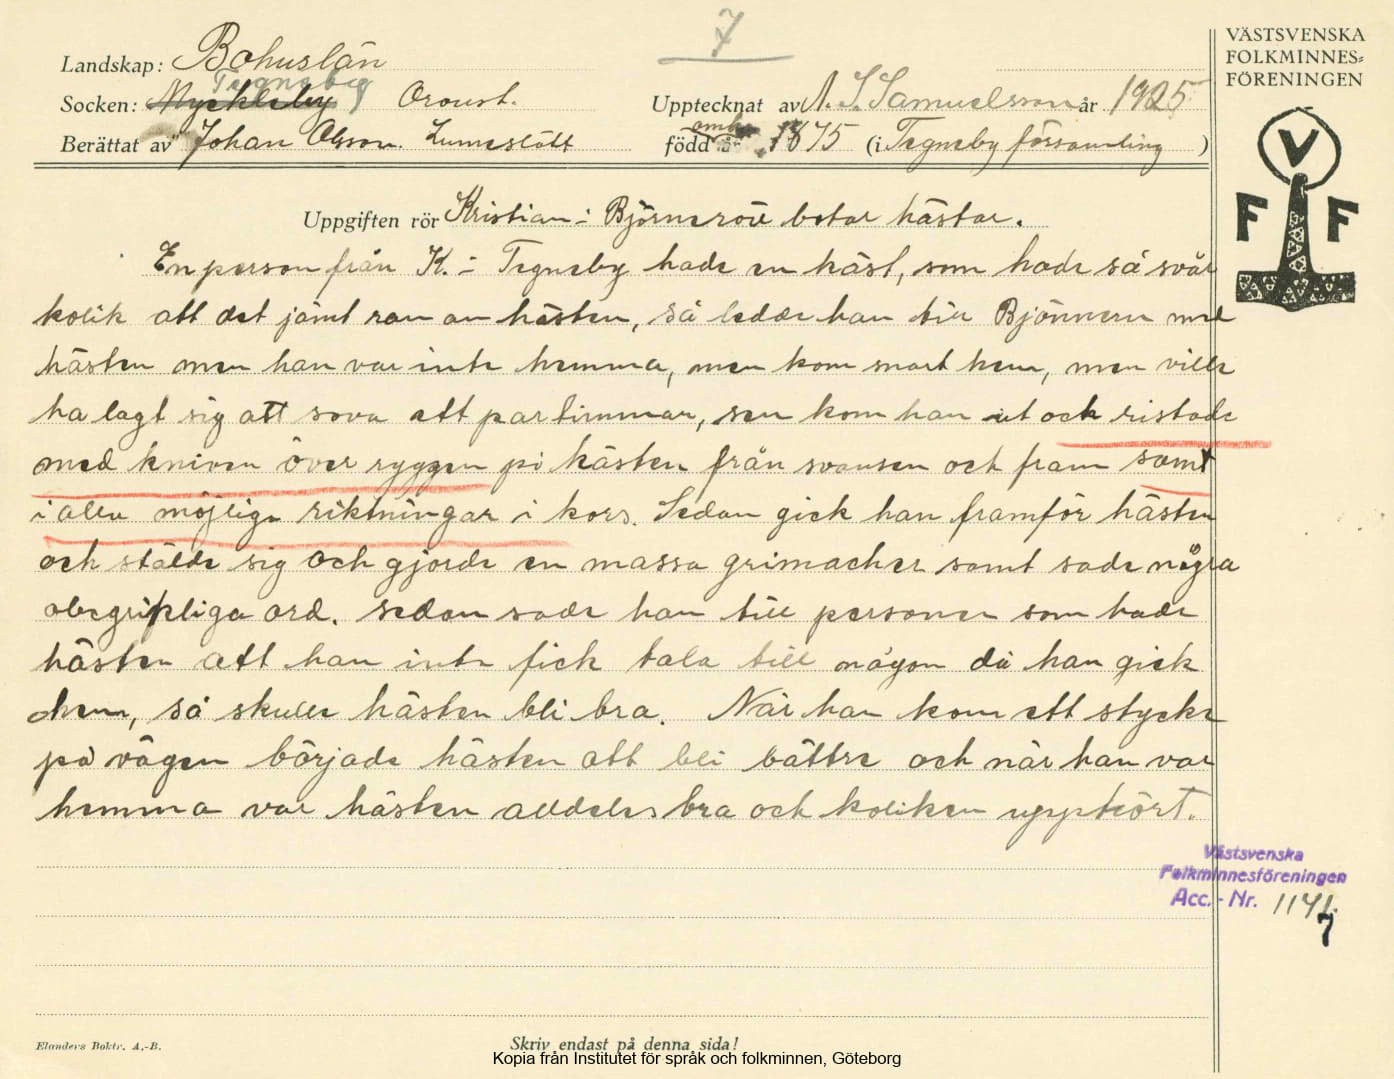 7
VÄSTSVENSKA
FOLKMINNES=
FÖRENINGEN
Landskap: Bohuslän
Tegneby
Socken: Myckleby Oroust.
Upptecknat av A. S. Samuelsson år 1925
Berättat av Johan Olsson.
född år omkr 1875 (i Tegneby församling )
V
F F
Uppgiften rör Kristian i Björneröd botar hästar.
En person från K. i Tegneby hade en häst, som hade så svår
kolik att det jämt ran av hästen, så ledde han till Björnern med
hästen men han var inte hemma, men kom snart hem, men ville
ha lagt sig att sova ett par timmar, sen kom han ut och ristade
med kniven över ryggen på hästen från svansen och fram samt
i alla möjliga riktningar i kors. Sedan gick han framför hästen
och stälde sig och gjorde en massa grimacher samt sade några
obegripliga ord. sedan sade han till personen som hade
hästen att han inte fick tala till någon då han gick
hem, så skulle hästen bli bra. När han kom ett stycke
på vägen började hästen att bli bättre och när han var
hemma var hästen alldeles bra och koliken upphört.
Västsvenska
Folkminnesföreningen
Acc. - Nr. 1141.
7
Elanders Boktr. A.-B.
Skriv endast på denna sida!
Kopia från Institutet för språk och folkminnen, Göteborg